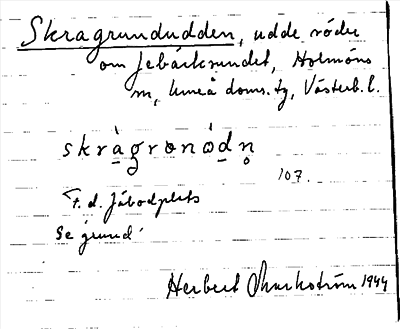 Skragrundudden, udde söder
om Jebäcksundet, Holmöns
sn, Umeå doms.tg, Västerb.l.
skràgronódn̥
107.
F.d. fäbodplats
Se grund
Herbert Markström 1944